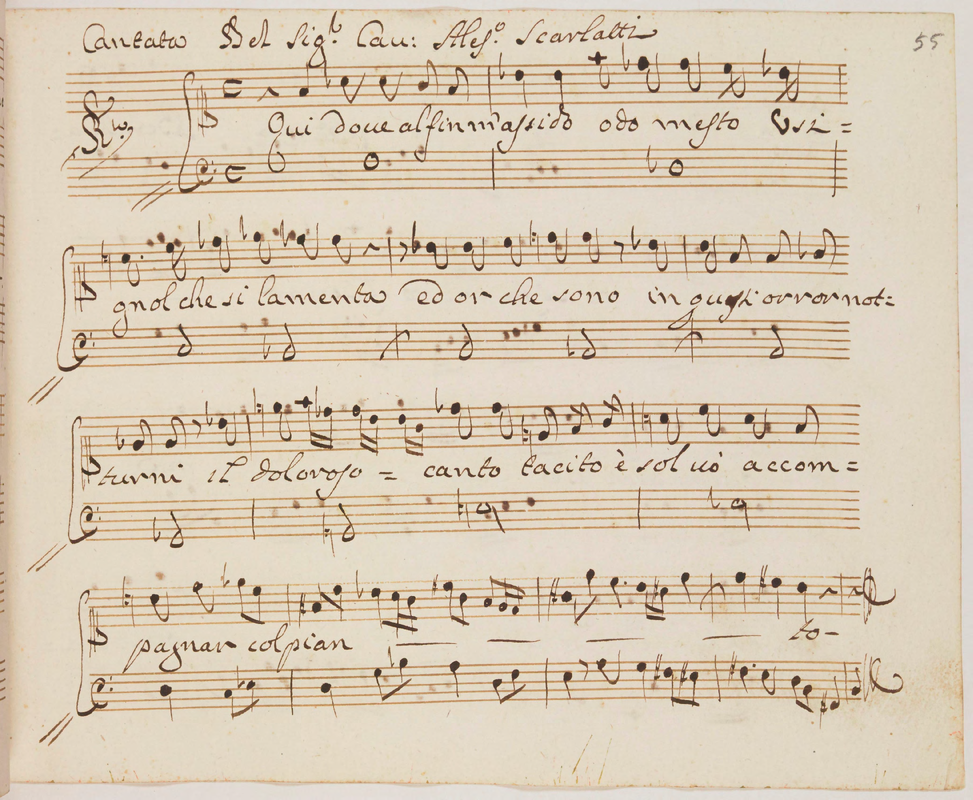 Cantata Del Sig.r Cau: Ales.o Scarlatti
55
Qui doue alfin m'assido odo mesto Vsi=
gnol che si lamenta ed or che sono in questi orror not=
turni il doloroso = canto tacito è sol uò accom=
pagnar col pian to-